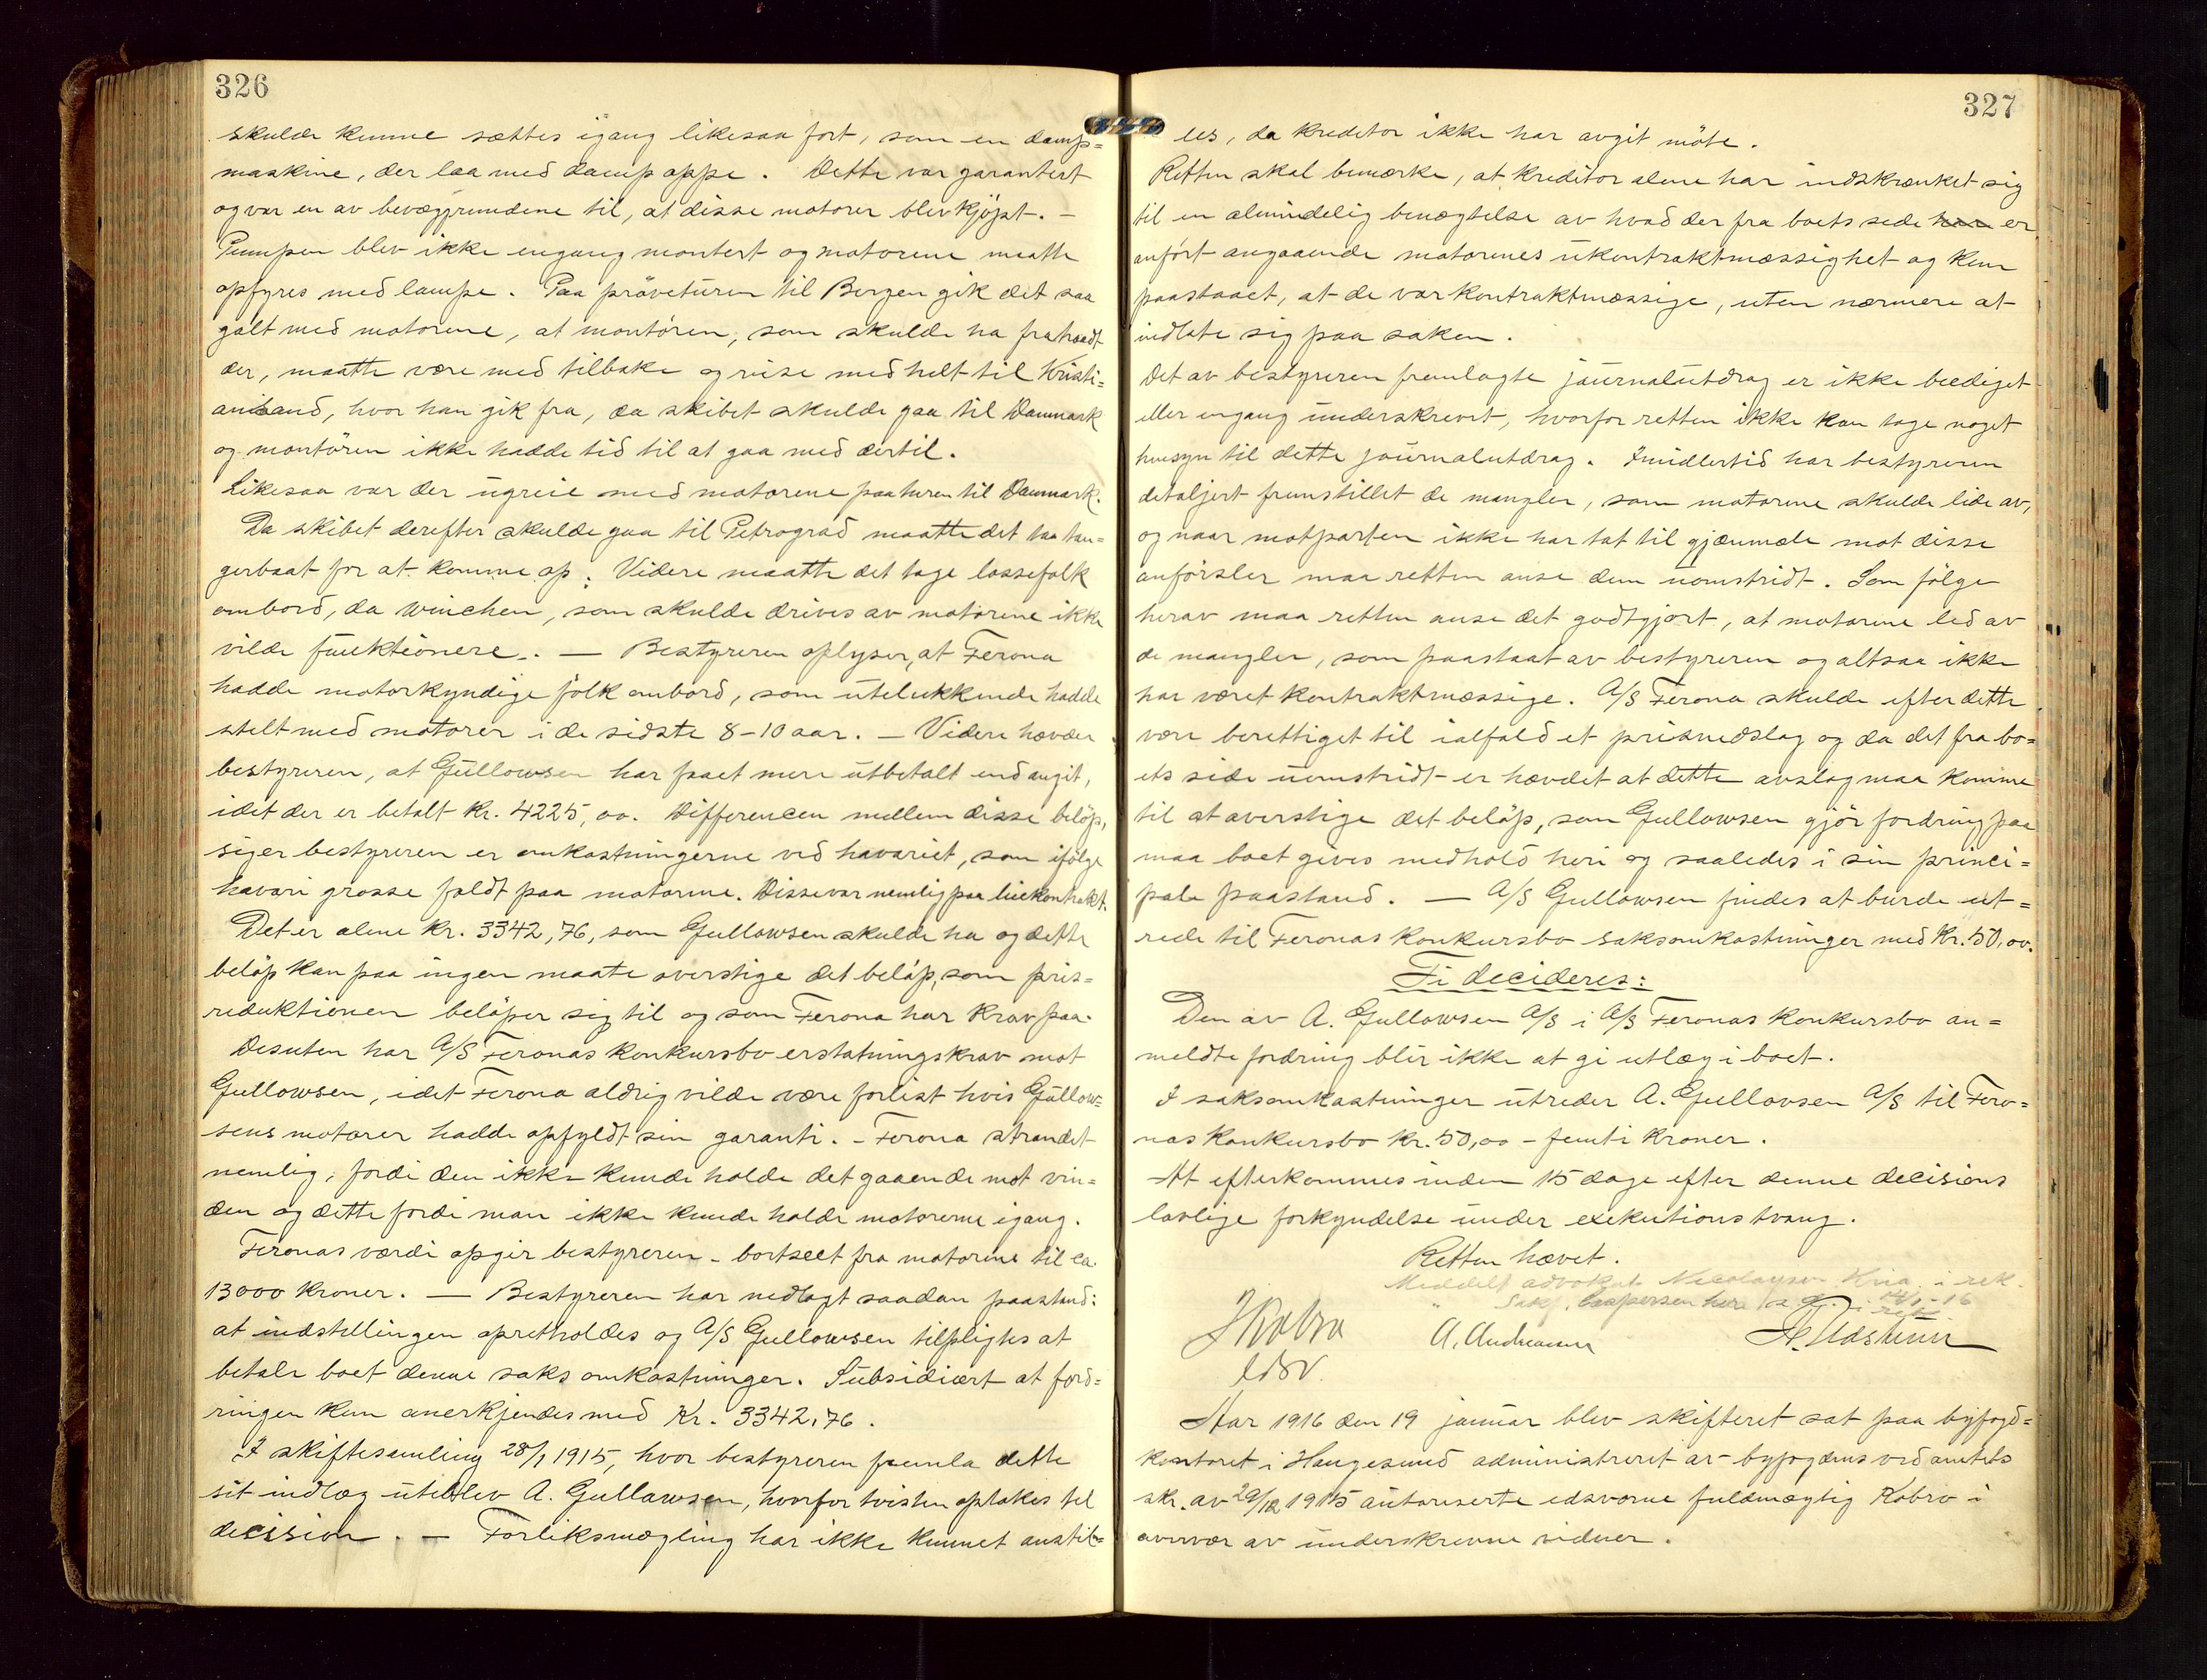 326
skulde kunne sættes igang likesaa fort, som en damp=
maskine, der laa med damp oppe. Dette var garantert
og var en av bevæggrundene til, at disse motorer blev kjöpt. –
Pumpen blev ikke engang montert og motorene maatte
opfyres med lampe. Paa pröveturen til Bergen gik det saa
galt med motorene, at montören, som skulde ha fratraadt
der, maatte være med tilbake og reise med helt til Kristi=
ansand, hvor han gik fra, da skibet skulde gaa til Danmark
og montören ikke hadde tid til at gaa med dertil.
Likesaa var der ugreie med motorene paa turen til Danmark.
Da skibet derefter skulde gaa til Petrograd maatte det taa tau=
gerbaat for at komme op. Videre maatte det tage lossefolk
ombord, da winchen, som skulde drives av motorene ikke
vilde funktionere. – Bestyreren oplyser, at Ferona
hadde motorkyndige folk ombord, som utelukkende hadde
stelt med motorer i de sidste 8–10 aar. – Videre hævder
bestyreren, at Gullowsen har faaet mere utbetalt end angit,
idet der er betalt kr. 4225,00. Differencen mellem disse belöp,
siger bestyreren er omkostningerne ved havariet, som ifölge
havari grosse faldt paa motorene. Disse var nemlig paa
Det er alene kr. 3342,76, som Gullowsen skulde ha og dette
belöp kan paa ingen maate overstige det belöp, som pris=
reduktionen belöper sig til og som Ferona har krav paa.
Desuten har A/S Feronas konkursbo erstatningskrav mot
Gullowsen, idet Ferona aldrig vilde være forlist hvis Gullow=
sens motorer hadde opfyldt sin garanti. – Ferona strandet
nemlig, fordi den ikke kunde holde det gaaende mot vin=
den og dette fordi man ikke kunde holde motorerne igang.
Feronas værdi opgir bestyreren – bortseet fra motorene til ca.
13000 kroner. – Bestyreren har nedlagt saadan paastand:
at indstillingen opretholdes og A/S Gullowsen tilpligtes at
betale boet denne saks omkostninger. Subsidiært at ford=
ringen kun anerkjendes med Kr. 3342,76.
I skiftesamling 28/1 1915, hvor bestyreren fremla dette
sit indlæg uteblev A. Gullowsen, hvorfor tvisten optokes til
decision. – Forliksmægling har ikke kunnet anstil=
327
les, da kreditor ikke har avgit möte.
Retten skal bemærke, at kreditor alene har indskrænket sig
til en almindelig benægtelse av hvad der fra boets side har er
anfört angaaende motorenes ukontraktmæssighet og kun
paastaaet, at de var kontraktmæssige, uten nærmere at
indlate sig paa saken.
Det av bestyreren fremlagte journalutdrag er ikke beediget
eller engang underskrevet, hvorfor retten ikke kan tage noget
hensyn til dette journalutdrag. Imidlertid har bestyreren
detaljert fremstillet de mangler, som motorene skulde lide av,
og naar motparten ikke har tat til gjenmæle mot disse
anförsler maa retten anse dem uomstridt. Som fölge
herav maa retten anse det godtgjort, at motorene led av
de mangler, som paastaat av bestyreren og altsaa ikke
har været kontraktmæssige. A/S Ferona skulde efter dette
være berettiget til ialfald et prisnedslag og da det fra bo=
ets side uomstridt er hævdet at dette avslag maa komme
til at overstige det belöp, som Gullowsen gjör fordring paa
maa boet gives medhold heri og saaledes i sin princi=
pale paastand. – A/S Gullowsen findes at burde ut=
rede til Feronas konkursbo saksomkostninger med Kr. 50,00.
Ti decideres:
Den av A. Gullowsen A/S i A/S Feronas konkursbo an=
meldte fordring blir ikke at gi utlæg i boet.
I saksomkostninger utreder A. Gullowsen A/S til Fero=
nas konkursbo kr. 50,00 – femti kroner.
At efterkommes inden 15 dage efter denne decisions
lovlige forkyndelse under exekutionstvang.
Retten hævet.
Meddelt advokat Nicolaysen Kria. i rek.
" Sakf. Caspersen her
Kobro
edsv.
A. Andreassen
Aar 1916 den 19 januar blev skifteret sat paa byfogd=
kontoret i Haugesund administreret av byfogdens ved amtets
skr. av 29/12 1915 autoriserte edsvorne fuldmægtig Kobro i
overvær av underskrevne vidner.